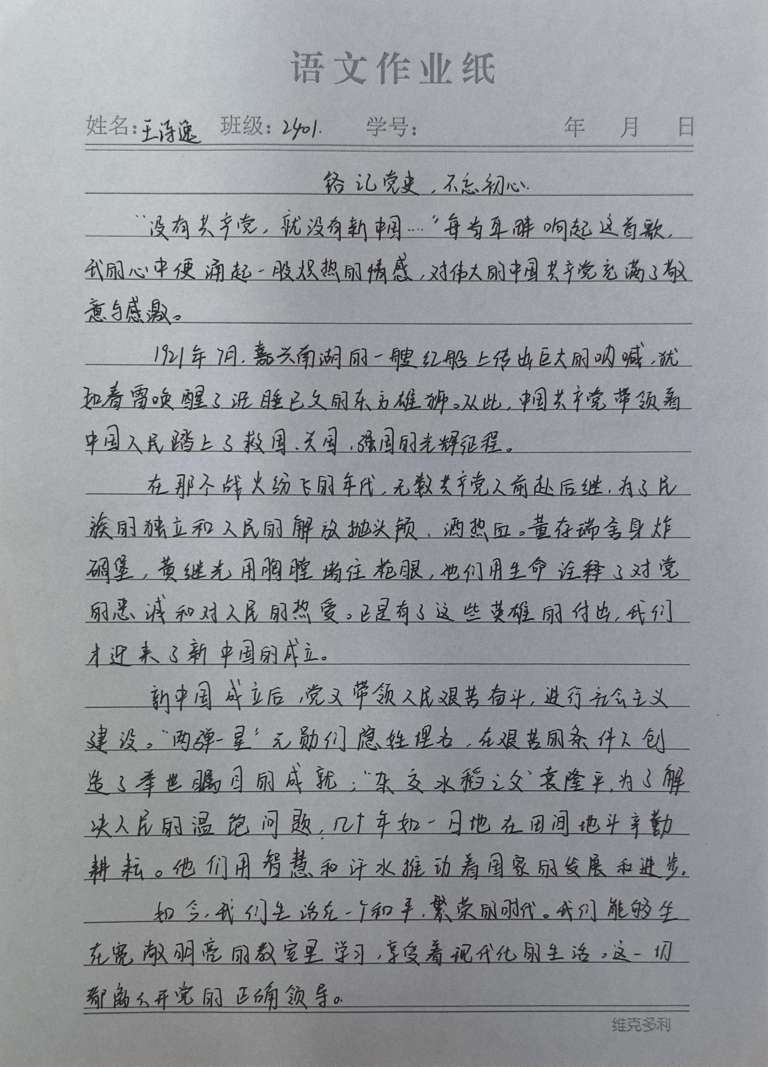 语文作业纸
姓名:王诗逸 班级:2401. 学号: 年 月 日
铭记党史,不忘初心.
“没有共产党,就没有新中国……”每当耳畔响起这首歌,
我的心中便涌起一股炽热的情感,对伟大的中国共产党充满了敬
意与感激。
1921年7月,嘉兴南湖的一艘红船上传出巨大的呐喊,犹
如春雷唤醒了沉睡已久的东方雄狮。从此,中国共产党带领着
中国人民踏上了救国、兴国、强国的光辉征程。
在那个战火纷飞的年代,无数共产党人前赴后继,为了民
族的独立和人民的解放抛头颅、洒热血。董存瑞舍身炸
碉堡,黄继光用胸膛堵住枪眼,他们用生命诠释了对党
的忠诚和对人民的热爱。正是有了这些英雄的付出,我们
才迎来了新中国的成立。
新中国成立后,党又带领人民艰苦奋斗,进行社会主义
建设。“两弹一星”元勋们隐姓埋名,在艰苦的条件下创
造了举世瞩目的成就;“杂交水稻之父”袁隆平,为了解
决人民的温饱问题,几十年如一日地在田间地头辛勤
耕耘。他们用智慧和汗水推动着国家的发展和进步.
如今,我们生活在一个和平、繁荣的时代。我们能够坐
在宽敞明亮的教室里学习,享受着现代化的生活。这一切
都离不开党的正确领导。
维克多利